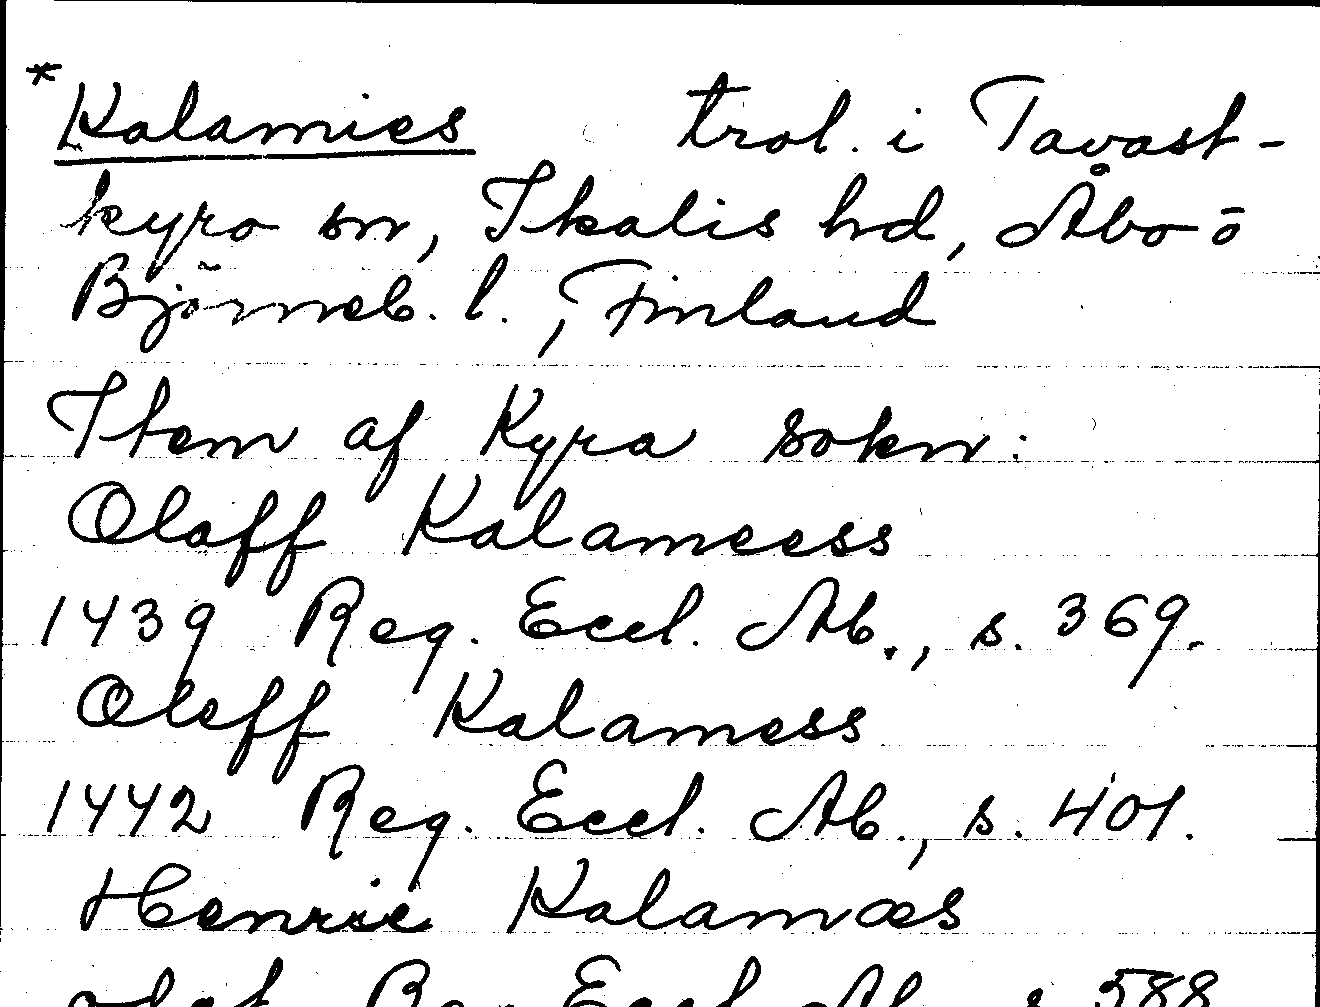 *Kalamies trol. i Tavast-
kyro sn, Ikalis hd, Åbo o
Björneb. l., Finland
Item af Kyra sokn:
Olaff Kalameess
1439 Reg. Eccl. Ab., s. 369.
Oleff Kalamess
1442 Reg. Eccl. Ab., s. 401.
Henric Kalamæs
odat. Reg. Eccl. Ab. s. 588